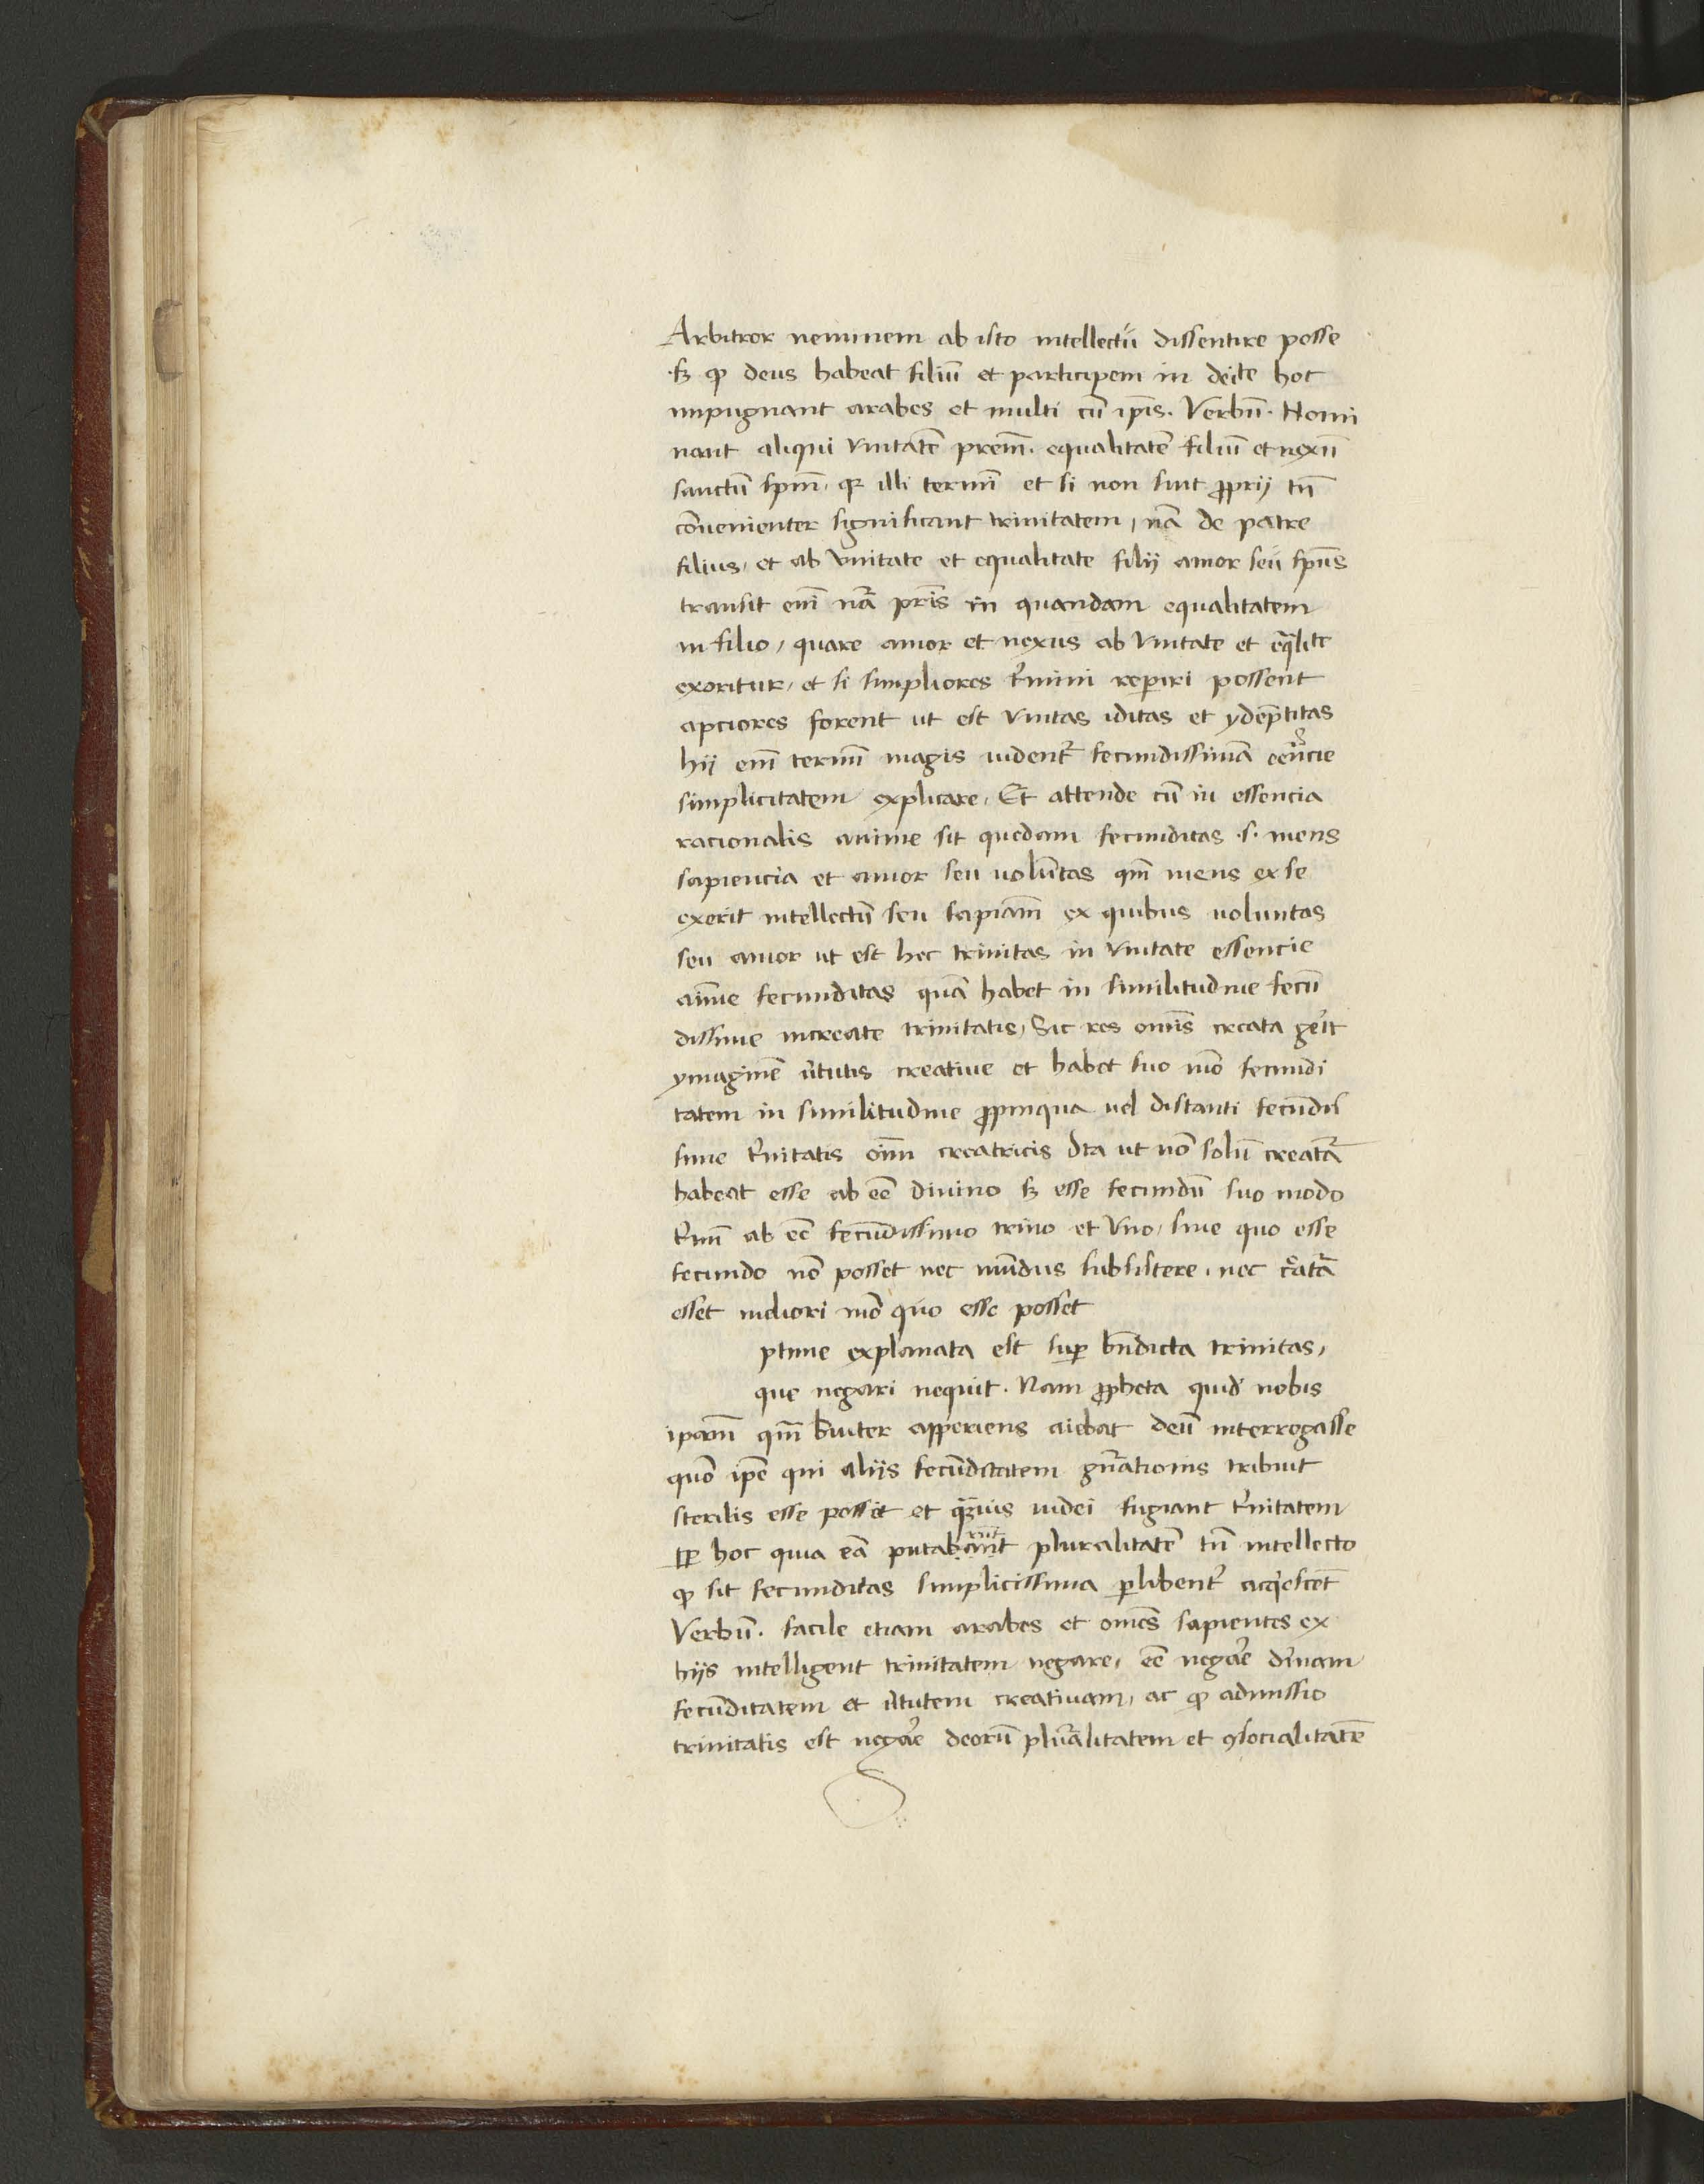 Arbitror neminem ab isto intellectu dissentire posse
sꝫ ꝙ deus habeat filiū et participem in deite hoc
impugnant arabes et multi cū ip̄is. Verbū. Nomi
nant aliqui vnitatē prēm. equalitatē filiū et nexū
sanctū sp̄m, ꝗꝛ illi termī et si non sint ꝓprij tn̄
conuenienter significant trinitatem, nā de patre
filius, et ab vnitate et equalitate filij amor seu sp̄us
transit eni nrā pr̄is in quandam equalitatem
in filio, quare amor et nexus ab vnitate et eq̄lite
exoritur, et si simpliores t̄mini reperiri possent
apciores forent ut est vnitas iditas et ydēptitas
hij eni termī magis vident̄ fecundissimā eēncie
simplicitatem explicare, Et attende cū in essencia
racionalis anime sit quedam fecunditas .s. mens
sapiencia et amor seu volūtas qm̄ mens ex se
exerit intellectū seu sapiam̄ ex quibus voluntas
seu amor ut est hec trinitas in vnitate essencie
aīme fecunditas quā habet in similitudine fecū
dissime increate trinitatis, Sic res omīs creata gerit
ymaginē v̄tutis creatiue et habet suo mō fecundi
tatem in similitudine ꝓpinqua uel distanti fecūdis
sime t̄nitatis oīm creatricis Ita ut nō solū creatā
habeat esse ab eē diuino sꝫ esse fecundū suo modo
t̄nū ab eē fecūdissimo trino et vno, sine quo esse
fecundo nō posset nec mūdus subsistere, nec c̄atā
esset meliori mō quo esse posset
ptime explanata est suꝑ bn̄dicta trinitas,
que negari nequit. Nam ꝓpheta quid' nobis
ipam̄ qm̄ br̄uiter apperiens aiebat deū interrogasse
quō ip̄e qui aliis fecūditatem gn̄ationis tribuit
sterilis esse posset et q̄uis iudei fugiant t̄nitatem
ꝓpꝑ hoc quia eā putabant pluralitatē tn̄ intellecto
ꝙ sit fecunditas simplicissima ꝑlibent̄ acq'escēt
Verbū. facile etiam arabes et omēs sapientes ex
hijs intelligent trinitatem negare, eē negare diuinam
fecūditatem et v̄tutem creatiuam, ac ꝙ admissio
trinitatis est negare deorū plur̄alitatem et ꝯsocialitatē